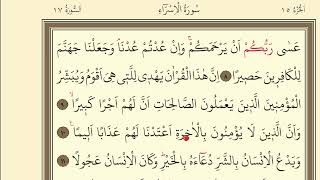 اَلْجُزْءُ ١٥ سُورَةُ الْاِسْرَٓاءِ اَلسُّورَةُ ١٧
عَسٰى رَبُّكُمْ اَنْ يَرْحَمَكُمْۚ وَاِنْ عُدْتُمْ عُدْنَاۢ وَجَعَلْنَا جَهَنَّمَ
لِلْكَافِر۪ينَ حَص۪يرًا ٨ اِنَّ هٰذَا الْقُرْاٰنَ يَهْد۪ي لِلَّت۪ي هِيَ اَقْوَمُ وَيُبَشِّرُ
الْمُؤْمِن۪ينَ الَّذ۪ينَ يَعْمَلُونَ الصَّالِحَاتِ اَنَّ لَهُمْ اَجْرًا كَب۪يرًاۙ ٩
وَاَنَّ الَّذ۪ينَ لَا يُؤْمِنُونَ بِالْاٰخِرَةِ اَعْتَدْنَا لَهُمْ عَذَابًا اَل۪يمًا۟ ١٠
وَيَدْعُ الْاِنْسَانُ بِالشَّرِّ دُعَٓاءَهُ بِالْخَيْرِۜ وَكَانَ الْاِنْسَانُ عَجُولًا ١١